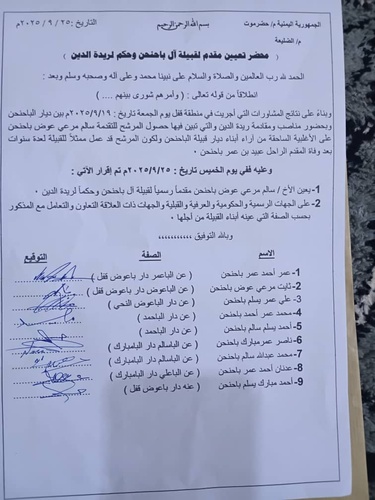 الجمهورية اليمنية م/ حضرموت
بسم الله الرحمن الرحيم
التاريخ : ٢٥ / ٩ / ٢٠٢٥م
م/ الضليعة
محضر تعيين مقدم لقبيلة آل باحنحن وحكم لريدة الدين
الحمد لله رب العالمين والصلاة والسلام على نبينا محمد وعلى آله وصحبه وسلم وبعد :
انطلاقاً من قوله تعالى : ( وأمرهم شورى بينهم .... )
وبناءً على نتائج المشاورات التي أجريت في منطقة قفل يوم الجمعة تاريخ ٢٠٢٥/٩/١٩م بين ديار الباحنحن
وبحضور مناصب ومقادمة ريدة الدين والتي تبين فيها حصول المرشح للتقدمة سالم مرعي عوض باحنحن
على الأغلبية السابقة من آراء أبناء ديار قبيلة الباحنحن ولكون المرشح قد عمل ممثلاً للقبيلة لعدة سنوات
بعد وفاة المقدم الراحل عبيد بن عمر باحنحن .
وعليه ففي يوم الخميس تاريخ ٢٠٢٥/٩/٢٥م تم إقرار الآتي :
1- يعين الأخ / سالم مرعي عوض باحنحن مقدماً رسمياً لقبيلة آل باحنحن وحكماً لريدة الدين .
2- على الجهات الرسمية والحكومية والعرفية والقبلية والجهات ذات العلاقة التعاون والتعامل مع المذكور
بحسب الصفة التي عينه أبناء القبيلة من أجلها .
وبالله التوفيق ,,,,,,,,,,,
الاسم الصفة التوقيع
1- عمر أحمد عمر باحنحن ( عن الباعمر دار باعوض قفل )
2- ثابت مرعي عوض باحنحن ( عن الباعوض دار باعوض قفل )
3- علي عمر يسلم باحنحن ( عن دار الباعوض النحي )
4- محمد عمر أحمد باحنحن ( عن دار الباحمد )
5- أحمد يسلم سالم باحنحن ( عن دار الباحمد )
6- ناصر عمر مبارك باحنحن ( عن الباسالم دار البامبارك )
7- محمد عبدالله سالم باحنحن ( عن الباسالم دار البامبارك )
8- عدنان أحمد عمر باحنحن ( عن الباعلي دار البامبارك )
9- أحمد مبارك يسلم باحنحن ( عنه دار باعوض قفل )